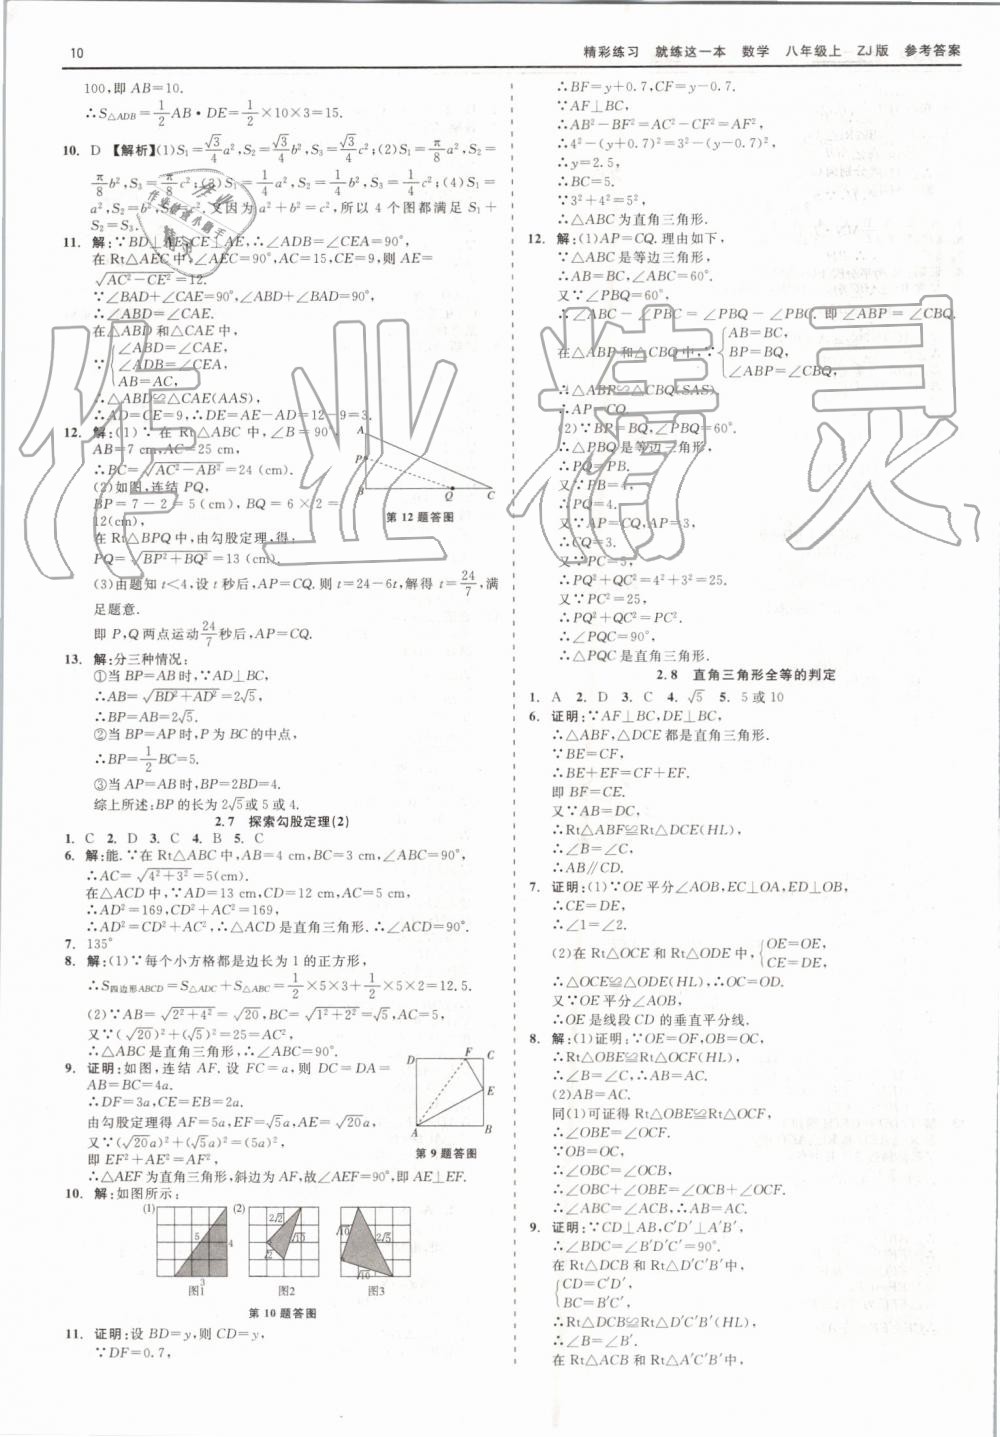 10
精彩练习 就练这一本 数学 八年级上 ZJ版 参考答案
100,即 AB=10.
∴S△ADB=1/2 AB·DE=1/2×10×3=15.
10. D 【解析】(1)S₁=√3/4 a²,S₂=√3/4 b²,S₃=√3/4 c²;(2)S₁=π/8 a²,S₂=
π/8 b²,S₃=π/8 c²;(3)S₁=1/4 a²,S₂=1/4 b²,S₃=1/4 c²;(4)S₁=
a²,S₂=b²,S₃=c²,又因为 a²+b²=c²,所以 4 个图都满足 S₁+
S₂=S₃.
11. 解:∵BD⊥AE,CE⊥AE,∴∠ADB=∠CEA=90°,
在 Rt△AEC 中,∠AEC=90°,AC=15,CE=9,则 AE=
√(AC²-CE²)=12.
∵∠BAD+∠CAE=90°,∠ABD+∠BAD=90°,
∴∠ABD=∠CAE.
在△ABD 和△CAE 中,
{∠ABD=∠CAE,
∵ ∠ADB=∠CEA,
AB=AC,
∴△ABD≌△CAE(AAS),
∴AD=CE=9,∴DE=AE-AD=12-9=3.
12. 解:(1)∵在 Rt△ABC 中,∠B=90°,
AB=7 cm,AC=25 cm,
∴BC=√(AC²-AB²)=24 (cm).
(2)如图,连结 PQ,
BP=7-2=5(cm),BQ=6×2=
12(cm),
在 Rt△BPQ 中,由勾股定理,得:
PQ=√(BP²+BQ²)=13 (cm).
A
P
B Q C
第 12 题答图
(3)由题知 t<4,设 t 秒后,AP=CQ. 则 t=24-6t,解得 t=24/7,满
足题意.
即 P,Q 两点运动24/7秒后,AP=CQ.
13. 解:分三种情况:
①当 BP=AB 时,∵AD⊥BC,
∴AB=√(BD²+AD²)=2√5,
∴BP=AB=2√5.
②当 BP=AP 时,P 为 BC 的中点,
∴BP=1/2 BC=5.
③当 AP=AB 时,BP=2BD=4.
综上所述:BP 的长为 2√5或 5 或 4.
2.7 探索勾股定理(2)
1. C 2. D 3. C 4. B 5. C
6. 解:能.∵在 Rt△ABC 中,AB=4 cm,BC=3 cm,∠ABC=90°,
∴AC=√(4²+3²)=5(cm).
在△ACD 中,∵AD=13 cm,CD=12 cm,AC=5 cm,
∴AD²=169,CD²+AC²=169,
∴AD²=CD²+AC²,∴△ACD 是直角三角形.∴∠ACD=90°.
7. 135°
8. 解:(1)∵每个小方格都是边长为 1 的正方形,
∴S四边形ABCD=S△ADC+S△ABC=1/2×5×3+1/2×5×2=12.5.
(2)∵AB=√(2²+4²)=√20,BC=√(1²+2²)=√5,AC=5,
又∵(√20)²+(√5)²=25=AC²,
∴△ABC 是直角三角形,∴∠ABC=90°.
9. 证明:如图,连结 AF. 设 FC=a,则 DC=DA=
AB=BC=4a.
∴DF=3a,CE=EB=2a.
由勾股定理得 AF=5a,EF=√5a,AE=√20a,
又∵(√20a)²+(√5a)²=(5a)²,
即 EF²+AE²=AF²,
∴△AEF 为直角三角形,斜边为 AF,故∠AEF=90°,即 AE⊥EF.
D F C
E
A B
第 9 题答图
10. 解:如图所示:
(1) (2)
5 4 3
2√2 √10 √2
√10 2√5 √10
图1 图2 图3
第 10 题答图
11. 证明:设 BD=y,则 CD=y,
∵DF=0.7,
∴BF=y+0.7,CF=y-0.7.
∵AF⊥BC,
∴AB²-BF²=AC²-CF²=AF²,
∴4²-(y+0.7)²=3²-(y-0.7)²,
∴y=2.5,
∴BC=5.
∵3²+4²=5²,
∴△ABC 为直角三角形.
12. 解:(1)AP=CQ. 理由如下,
∵△ABC 是等边三角形,
∴AB=BC,∠ABC=60°.
又∵∠PBQ=60°,
∴∠ABC-∠PBC=∠PBQ-∠PBC. 即∠ABP=∠CBQ.
{AB=BC,
在△ABP 和△CBQ 中,∵ BP=BQ,
∠ABP=∠CBQ,
∴△ABP≌△CBQ(SAS).
∴AP=CQ.
(2)∵BP=BQ,∠PBQ=60°.
∴△PBQ 是等边三角形,
∴PQ=PB.
又∵PB=4,
∴PQ=4.
又∵AP=CQ,AP=3,
∴CQ=3.
又∵PC=5,
∴PQ²+QC²=4²+3²=25.
又∵PC²=25,
∴PQ²+QC²=PC².
∴∠PQC=90°,
∴△PQC 是直角三角形.
2.8 直角三角形全等的判定
1. A 2. D 3. C 4. √5 5. 5 或 10
6. 证明:∵AF⊥BC,DE⊥BC,
∴△ABF,△DCE 都是直角三角形.
∵BE=CF,
∴BE+EF=CF+EF.
即 BF=CE.
又∵AB=DC,
∴Rt△ABF≌Rt△DCE(HL),
∴∠B=∠C,
∴AB∥CD.
7. 证明:(1)∵OE 平分∠AOB,EC⊥OA,ED⊥OB,
∴CE=DE,
∴∠1=∠2.
(2)在 Rt△OCE 和 Rt△ODE 中,{OE=OE,
CE=DE,
∴△OCE≌△ODE(HL),∴OC=OD.
又∵OE 平分∠AOB,
∴OE 是线段 CD 的垂直平分线.
8. 解:(1)证明:∵OE=OF,OB=OC,
∴Rt△OBE≌Rt△OCF(HL),
∴∠B=∠C,∴AB=AC.
(2)AB=AC.
同(1)可证得 Rt△OBE≌Rt△OCF,
∴∠OBE=∠OCF.
∵OB=OC,
∴∠OBC=∠OCB,
∴∠OBC+∠OBE=∠OCB+∠OCF,
∴∠ABC=∠ACB,∴AB=AC.
9. 证明:∵CD⊥AB,C′D′⊥A′B′,
∴∠BDC=∠B′D′C′=90°.
在 Rt△DCB 和 Rt△D′C′B′中,
{CD=C′D′,
BC=B′C′,
∴Rt△DCB≌Rt△D′C′B′(HL),
∴∠B=∠B′.
在 Rt△ACB 和 Rt△A′C′B′中,
作业精灵